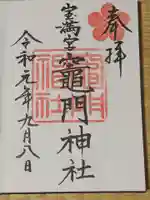 奉拝
宝満宮
竈門神社
令和元年九月八日